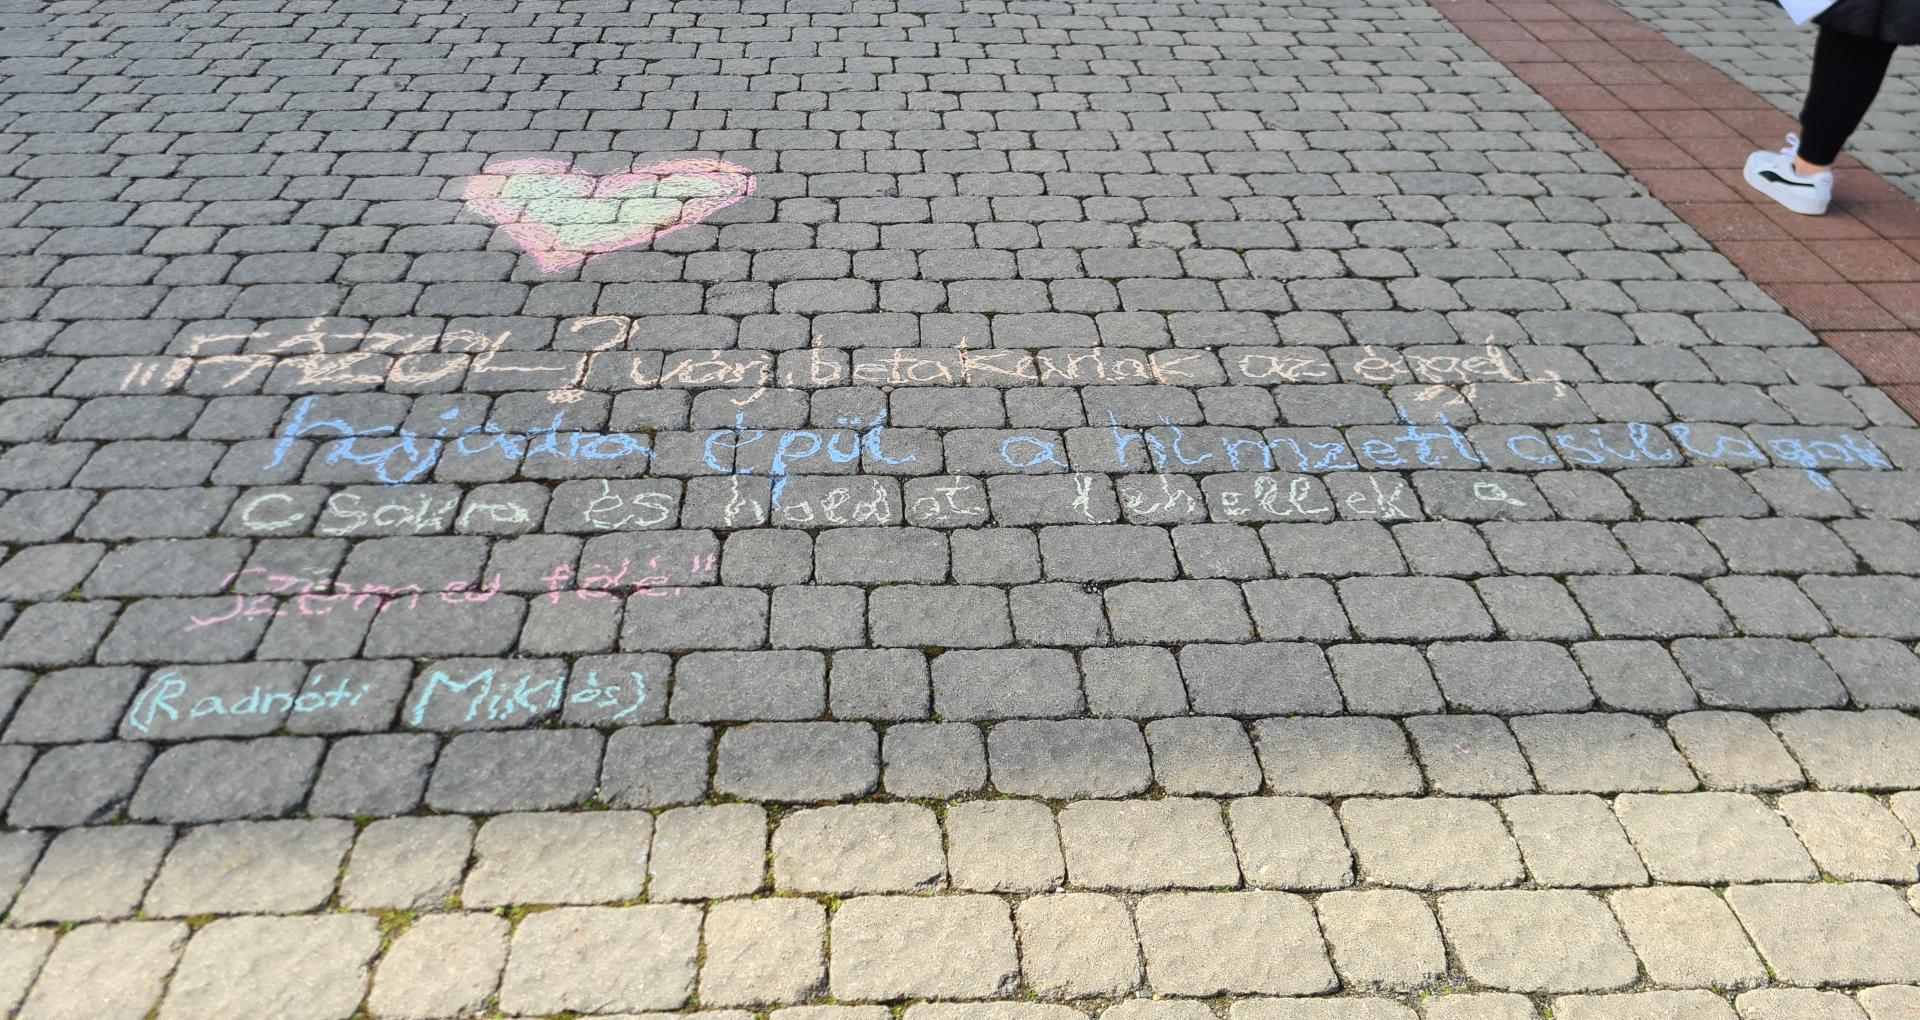 „FÁZOL? várj, betakarlak az éggel,
hajadra épül a hímzett csillagok
csokra és holdat lehellek a
szemed fölé."
(Radnóti Miklós)